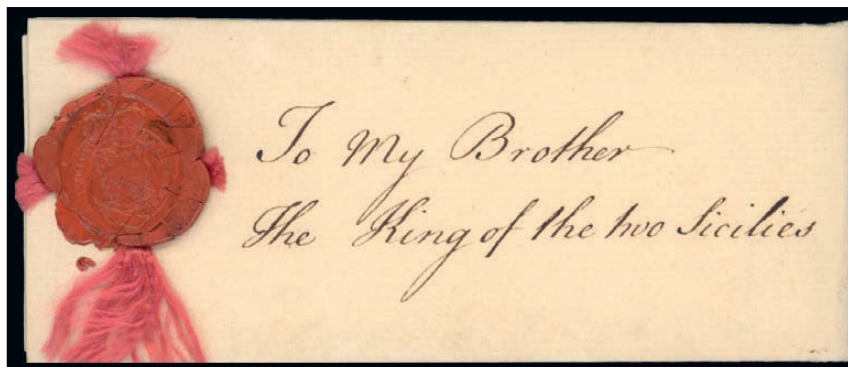 To My Brother
The King of the two Sicilies